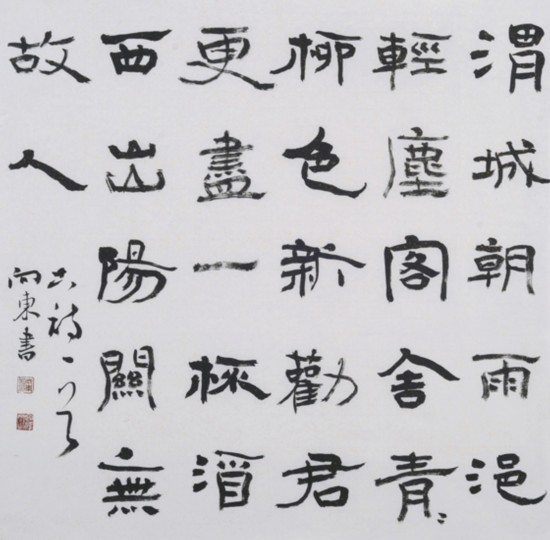 渭城朝雨浥
輕塵客舍青〻
柳色新勸君
更盡一杯酒
西出陽關無
故人
古詩一首
向東書